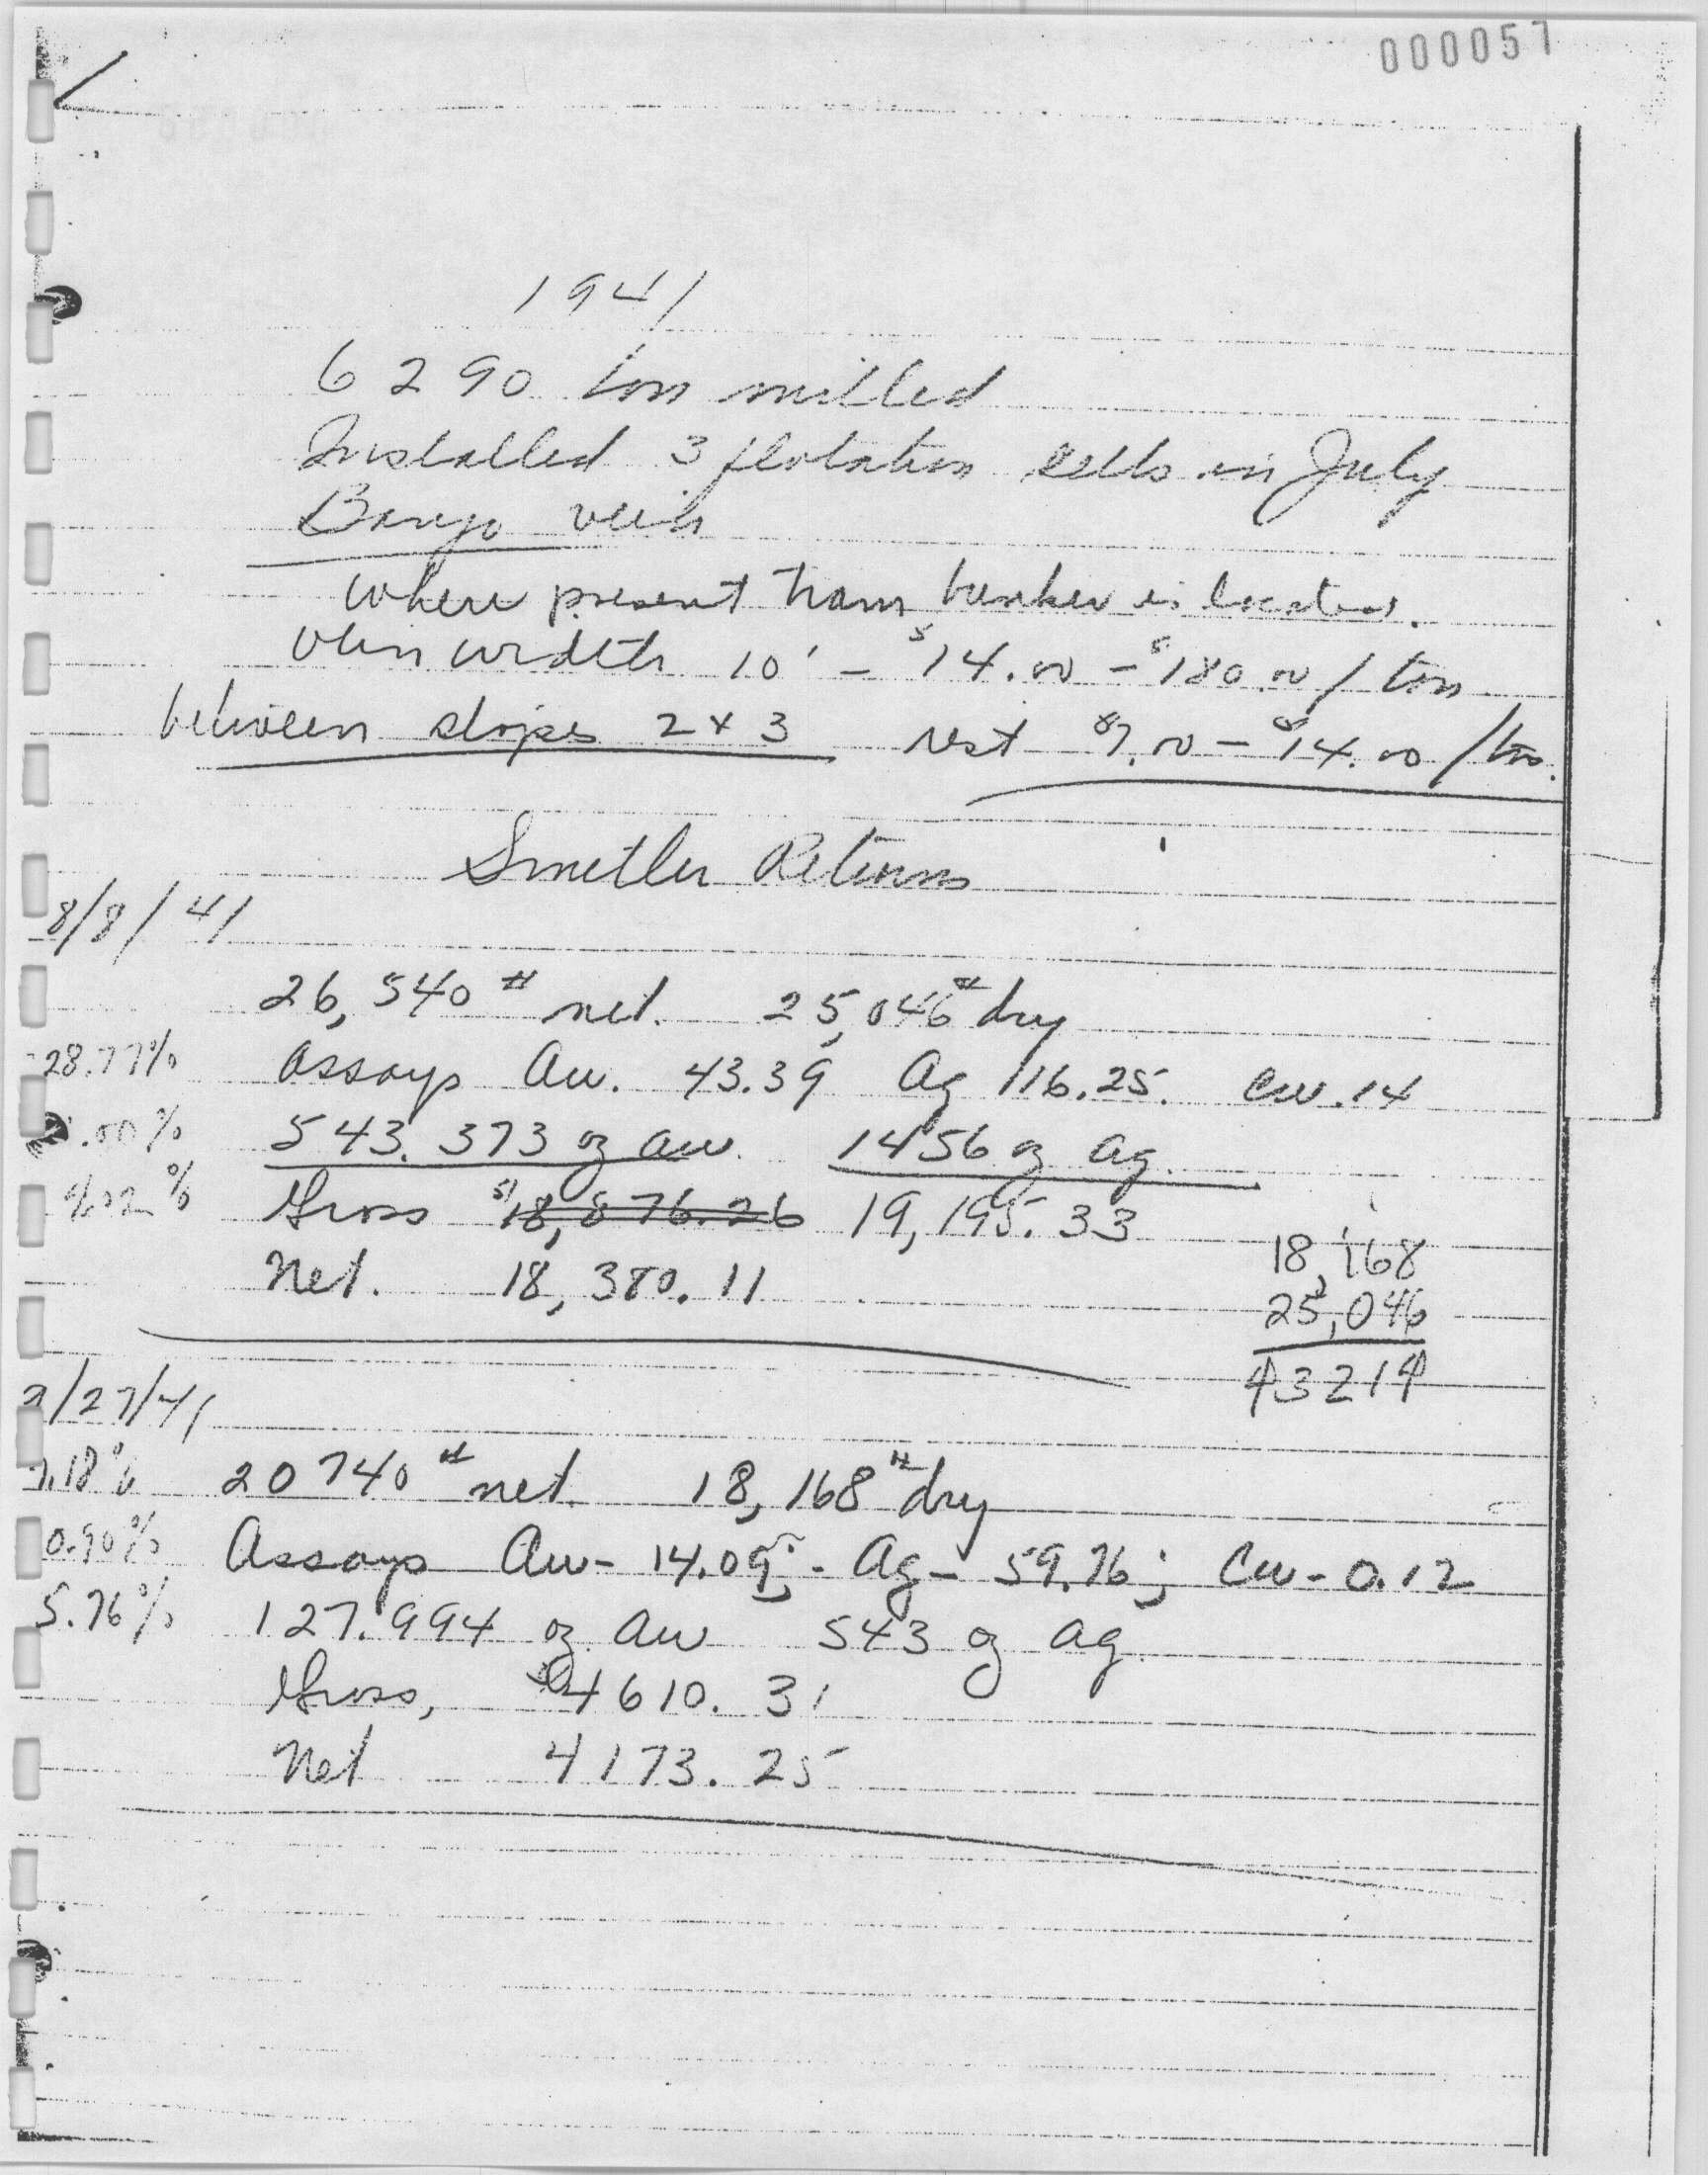 000057
1941
6290 tons milled
Installed 3 flotation cells in July
Banjo vein
where present tram bunker is located.
Vein width 10' - $14.00 - $180.00 / ton
between slopes 2 + 3 rest $7.00 - $14.00 / ton.
Smelter Returns
8/8/41
26,540 # net. 25,046 # dry
28.77% assays Au. 43.39 Ag 116.25. Cu .14
.00% 543.373 oz Au. 1456 oz Ag.
% Gross $18,876.26 19,195.33
Net. 18,380.11
18,168
25,046
43214
/27/41
.18% 20740 # net. 18,168 # dry
0.90% Assays Au - 14.09; - Ag - 59.76; Cu - 0.12
5.76% 127.994 oz. Au 543 oz Ag.
Gross, $4610.31
Net 4173.25